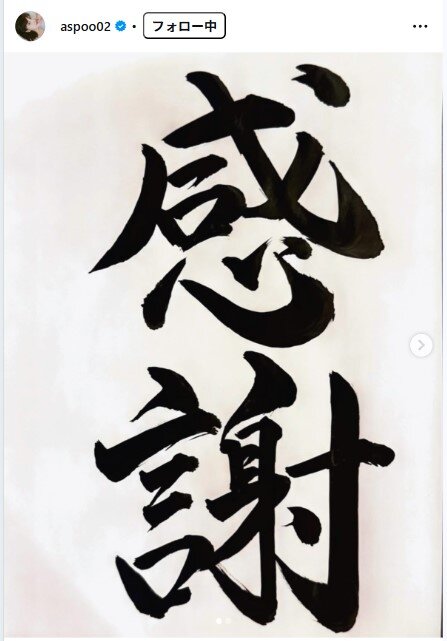 aspoo02 • フォロー中
感
謝